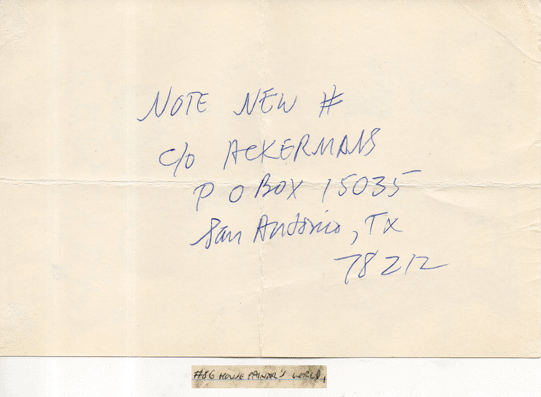 NOTE NEW #
c/o ACKERMANS
P O BOX 15035
San Antonio, TX
78212
#86 HOUSE PAINTER'S WORLD,